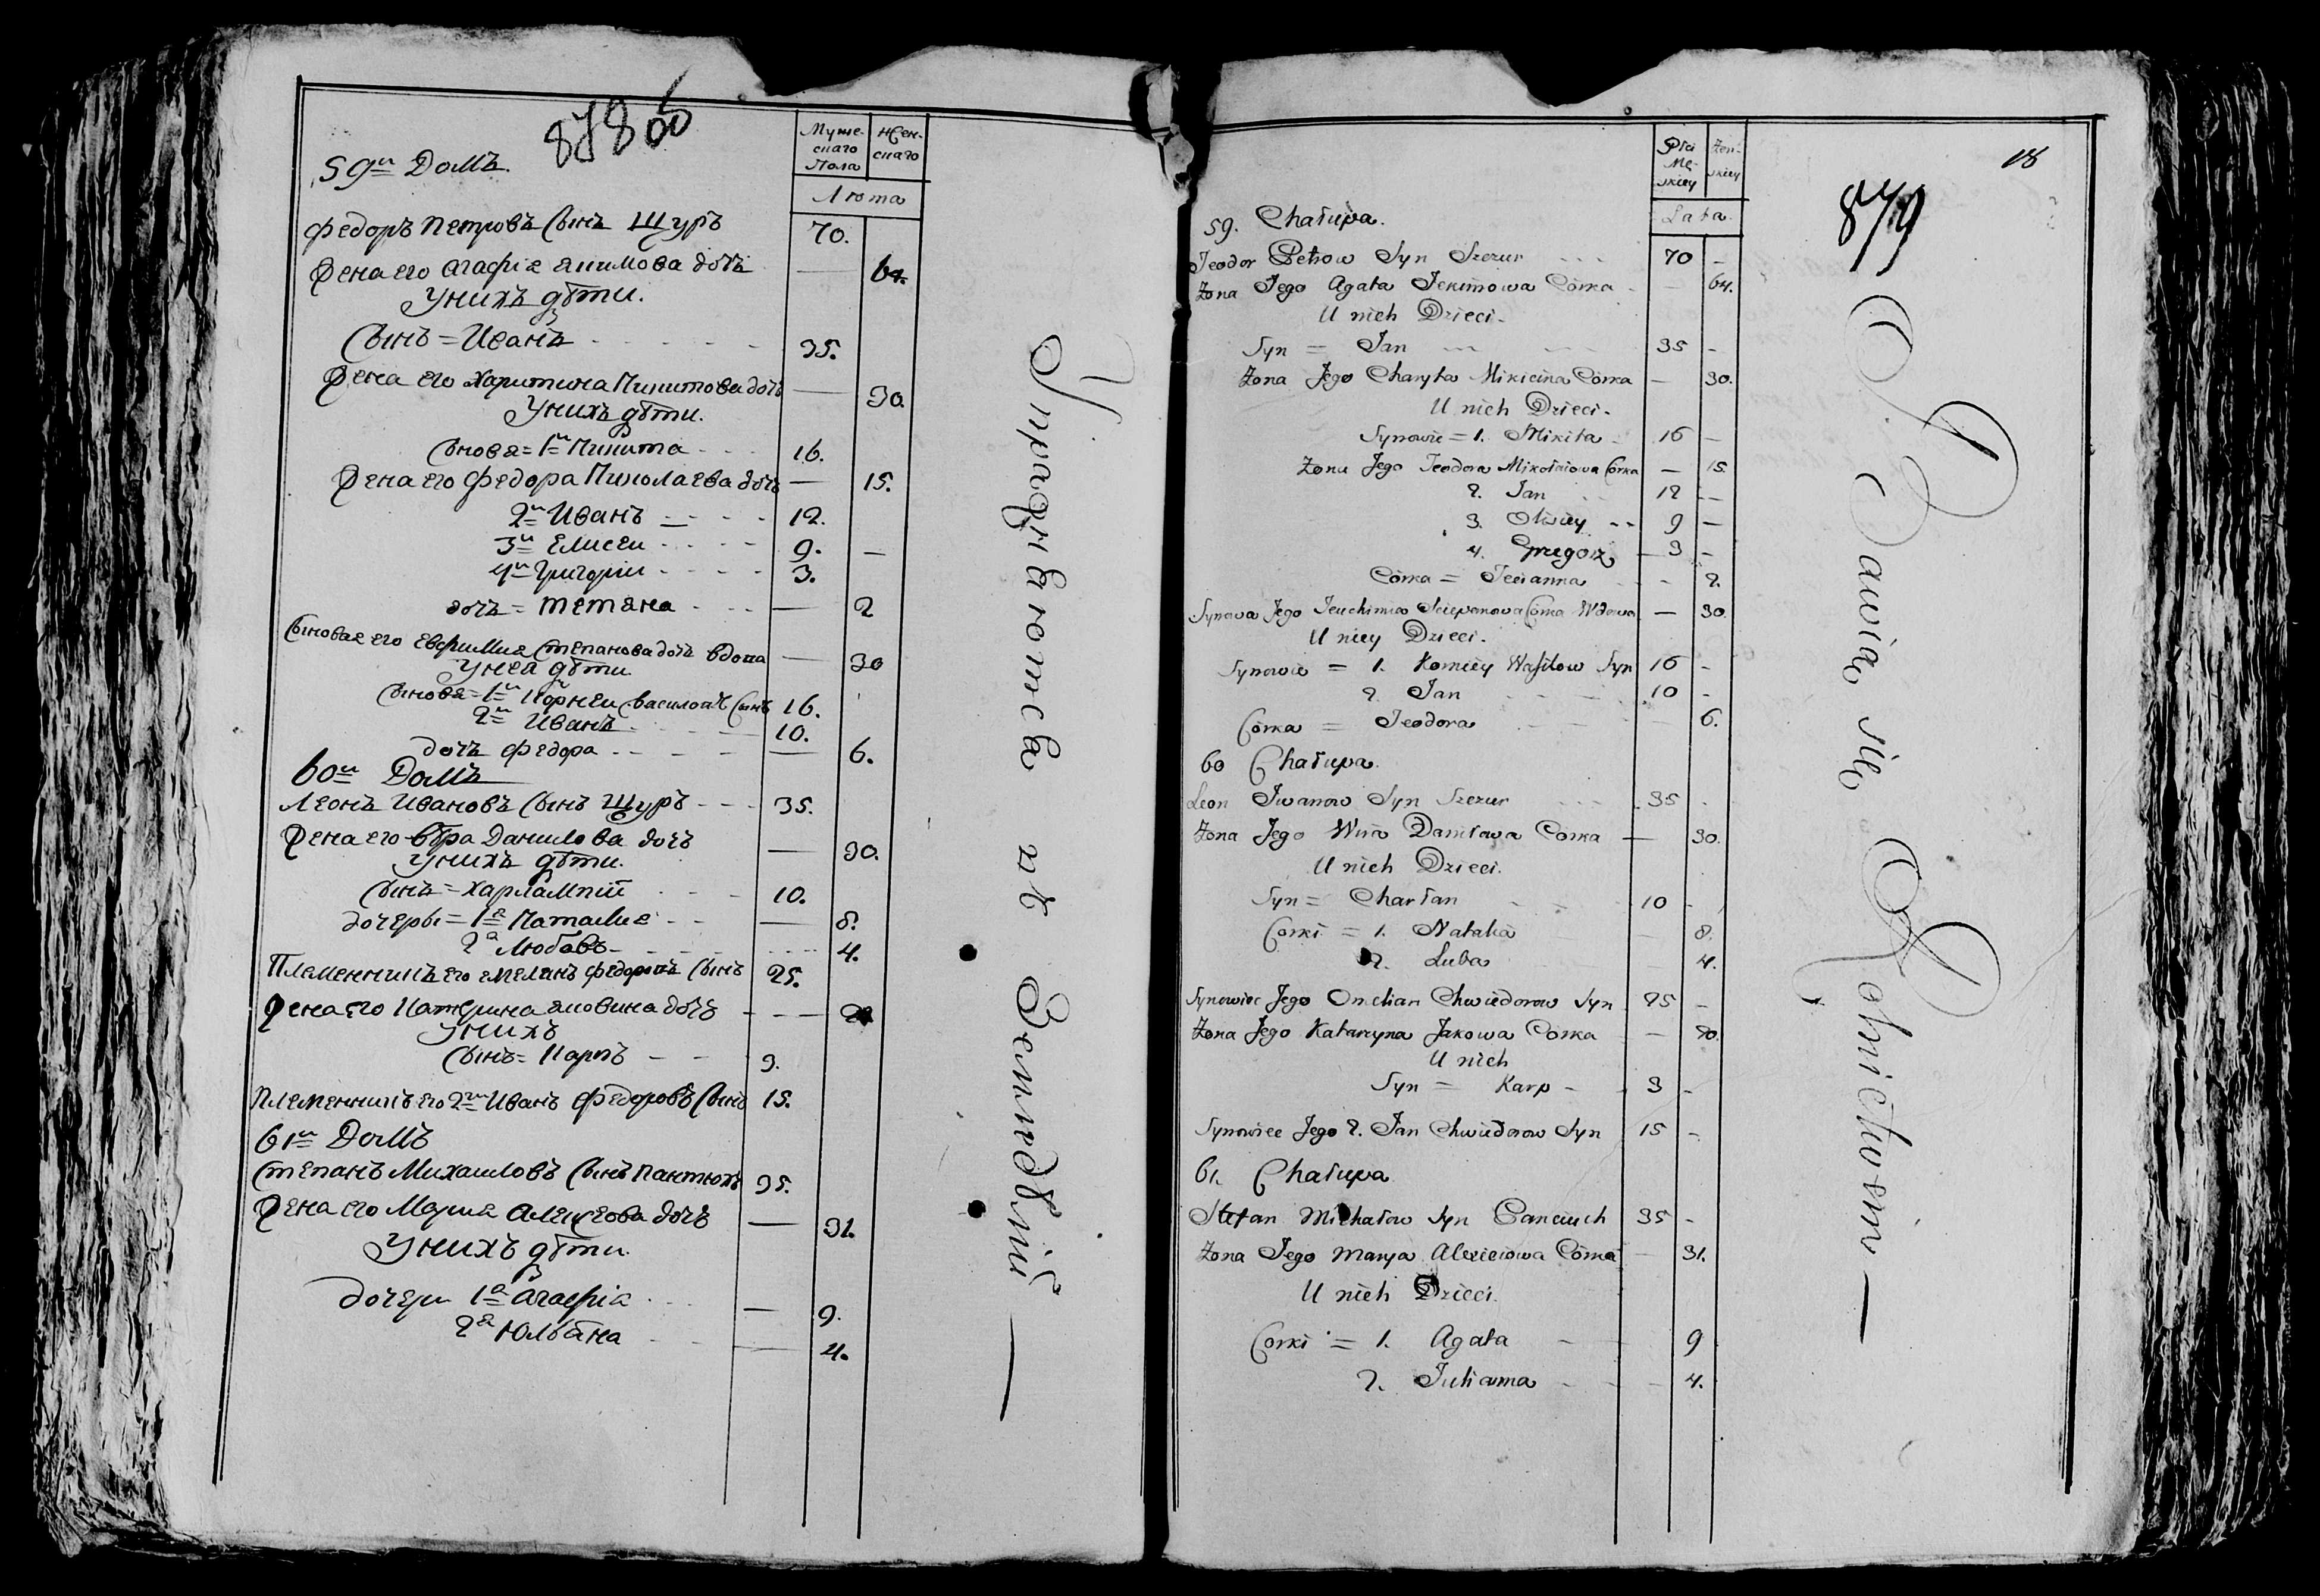 878 об
59й Домъ.
Мужескаго Пола
Женскаго
Лѣта
Федоръ Петровъ Сынъ Щуръ 70.
Жена его Агафія Якимова дочь — 64.
У нихъ дѣти.
Сынъ = Иванъ 35.
Жена его Харитина Никитова дочь — 30.
У нихъ дѣти.
Сыновя = 1й Никита 16.
Жена его Федора Николаева дочь — 15.
2й Иванъ 12.
3й Елисеи 9. —
4й Григории 3.
дочь = Тетяна — 2
Сыновая его Евфимия Степанова дочь вдова — 30
У нея дѣти
Сыновя = 1й Корнеи Василовъ Сынъ 16.
2й Иванъ 10.
дочь Федора — 6.
60й Домъ
Леонъ Ивановъ Сынъ Щуръ 35.
Жена его Вѣра Данилова дочь — 30.
У нихъ дѣти.
Сынъ = Харлампій 10.
дочеры = 1я Наталия — 8.
2я Любовъ 4.
Племенникъ его Емелянъ Федоровъ Сынъ 25.
Жена его Катерина Яковина дочь —
У нихъ
Сынъ = Карпъ 3.
Племенникъ его 2й Иванъ Федоровъ Сынъ 15.
61й Домъ
Степанъ Михаиловъ Сынъ Пантюхъ 35.
Жена его Мария Алексеова дочь — 31.
У нихъ дѣти.
дочери 1я Агафіа — 9.
2я Юльяна — 4.
Упражняются въ Земледѣліи —
18
879
Płci Męskiey
Żenskiey
Lata
59. Chałupa.
Teodor Petrow Syn Szczur 70 —
Zona Jego Agata Jekimowa Córka — 64.
U nich Dzieci.
Syn = Jan 35 —
Zona Jego Charyta Mikicina Córka — 30.
U nich Dzieci.
Synowie = 1. Mikita 16 —
Zona Jego Teodora Mikołaiowa Córka — 15.
2. Jan 12 —
3. Oliziey 9 —
4. Gregorz 3 —
Córka = Tecianna — 2.
Synowa Jego Jeuchimia Sciepanowa Córka Wdowa — 30.
U niey Dzieci.
Synowie = 1. Korniey Wasilow Syn 16 —
2. Jan 10 —
Córka = Teodora — 6.
60 Chałupa.
Leon Iwanow Syn Szczur 35
Zona Jego Wira Daniłowa Corka — 30.
U nich Dzieci.
Syn = Charłan 10 —
Corki = 1. Natalia 8.
2. Luba 4.
Synowiec Jego Omelian Chwiedorow Syn 25 —
Zona Jego Katarzyna Jakowa Corka — 20.
U nich
Syn = Karp 3 —
Synowiec Jego 2. Jan Chwiedorow Syn 15 —
61. Chałupa
Stefan Michałow Syn Panciuch 35 —
Zona Jego Marya Alexieiowa Córka — 31.
U nich Dzieci.
Corki = 1. Agata 9
2. Julianna 4.
Bawią się Rolnictwem —